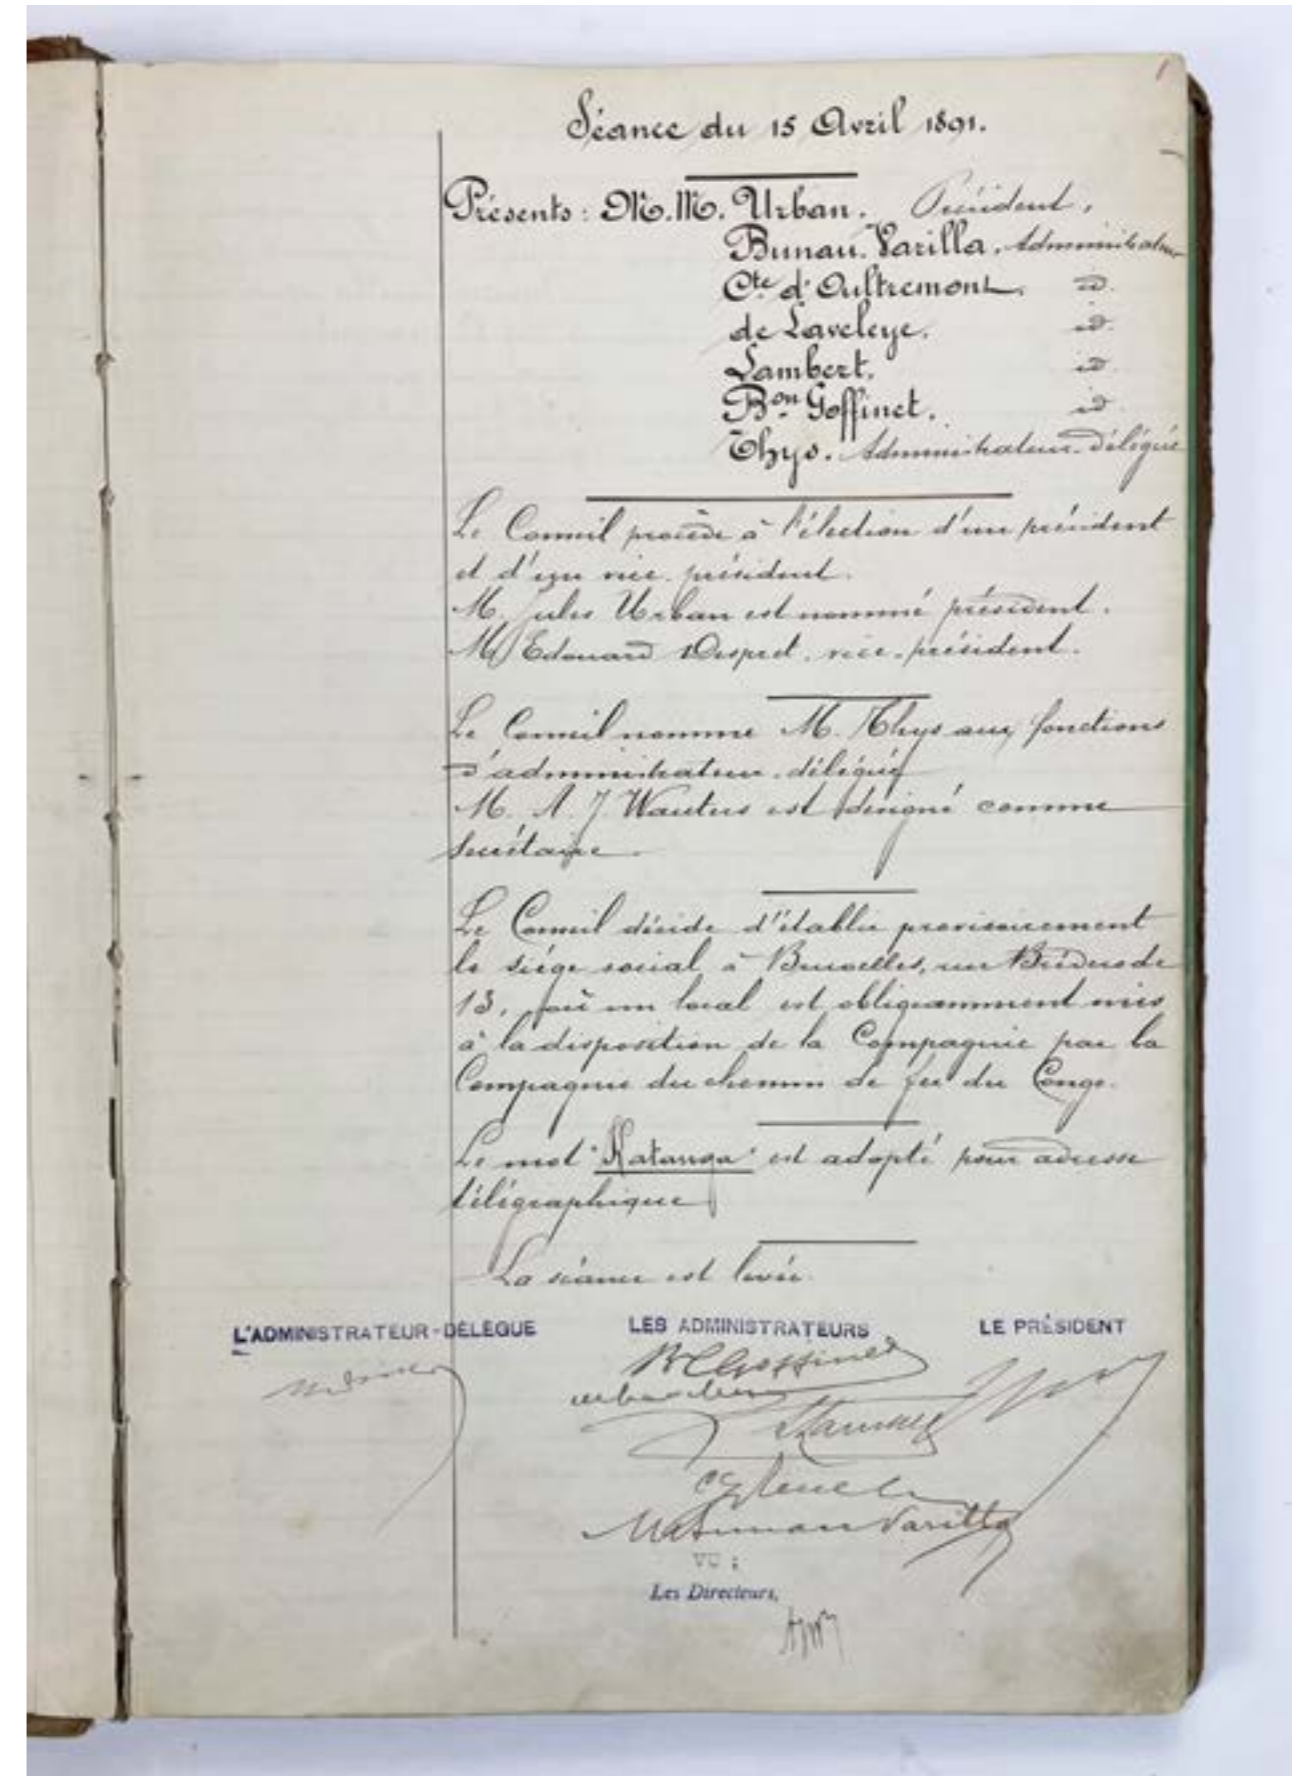 1
Séance du 15 Avril 1891.
Présents : M.M. Urban. Président,
Bunau-Varilla. Administrateur
Cte d'Oultremont. id.
de Laveleye. id.
Lambert. id.
Bon Goffinet. id.
Thys. Administrateur-Délégué
Le Conseil procède à l'élection d'un président
et d'un vice-président.
M. Jules Urban est nommé président.
M. Edouard Despret, vice-président.
Le Conseil nomme M. Thys aux fonctions
d'administrateur-délégué
M. A. J. Wauters est désigné comme
secrétaire.
Le Conseil décide d'établir provisoirement
le siège social à Bruxelles, rue Bréderode
13, où un local est obligeamment mis
à la disposition de la Compagnie par la
Compagnie du chemin de fer du Congo.
Le mot "Katanga" est adopté pour adresse
télégraphique
La séance est levée.
L'ADMINISTRATEUR-DÉLÉGUÉ LES ADMINISTRATEURS LE PRÉSIDENT
Goffinet
Bunau Varilla
VU :
Les Directeurs,